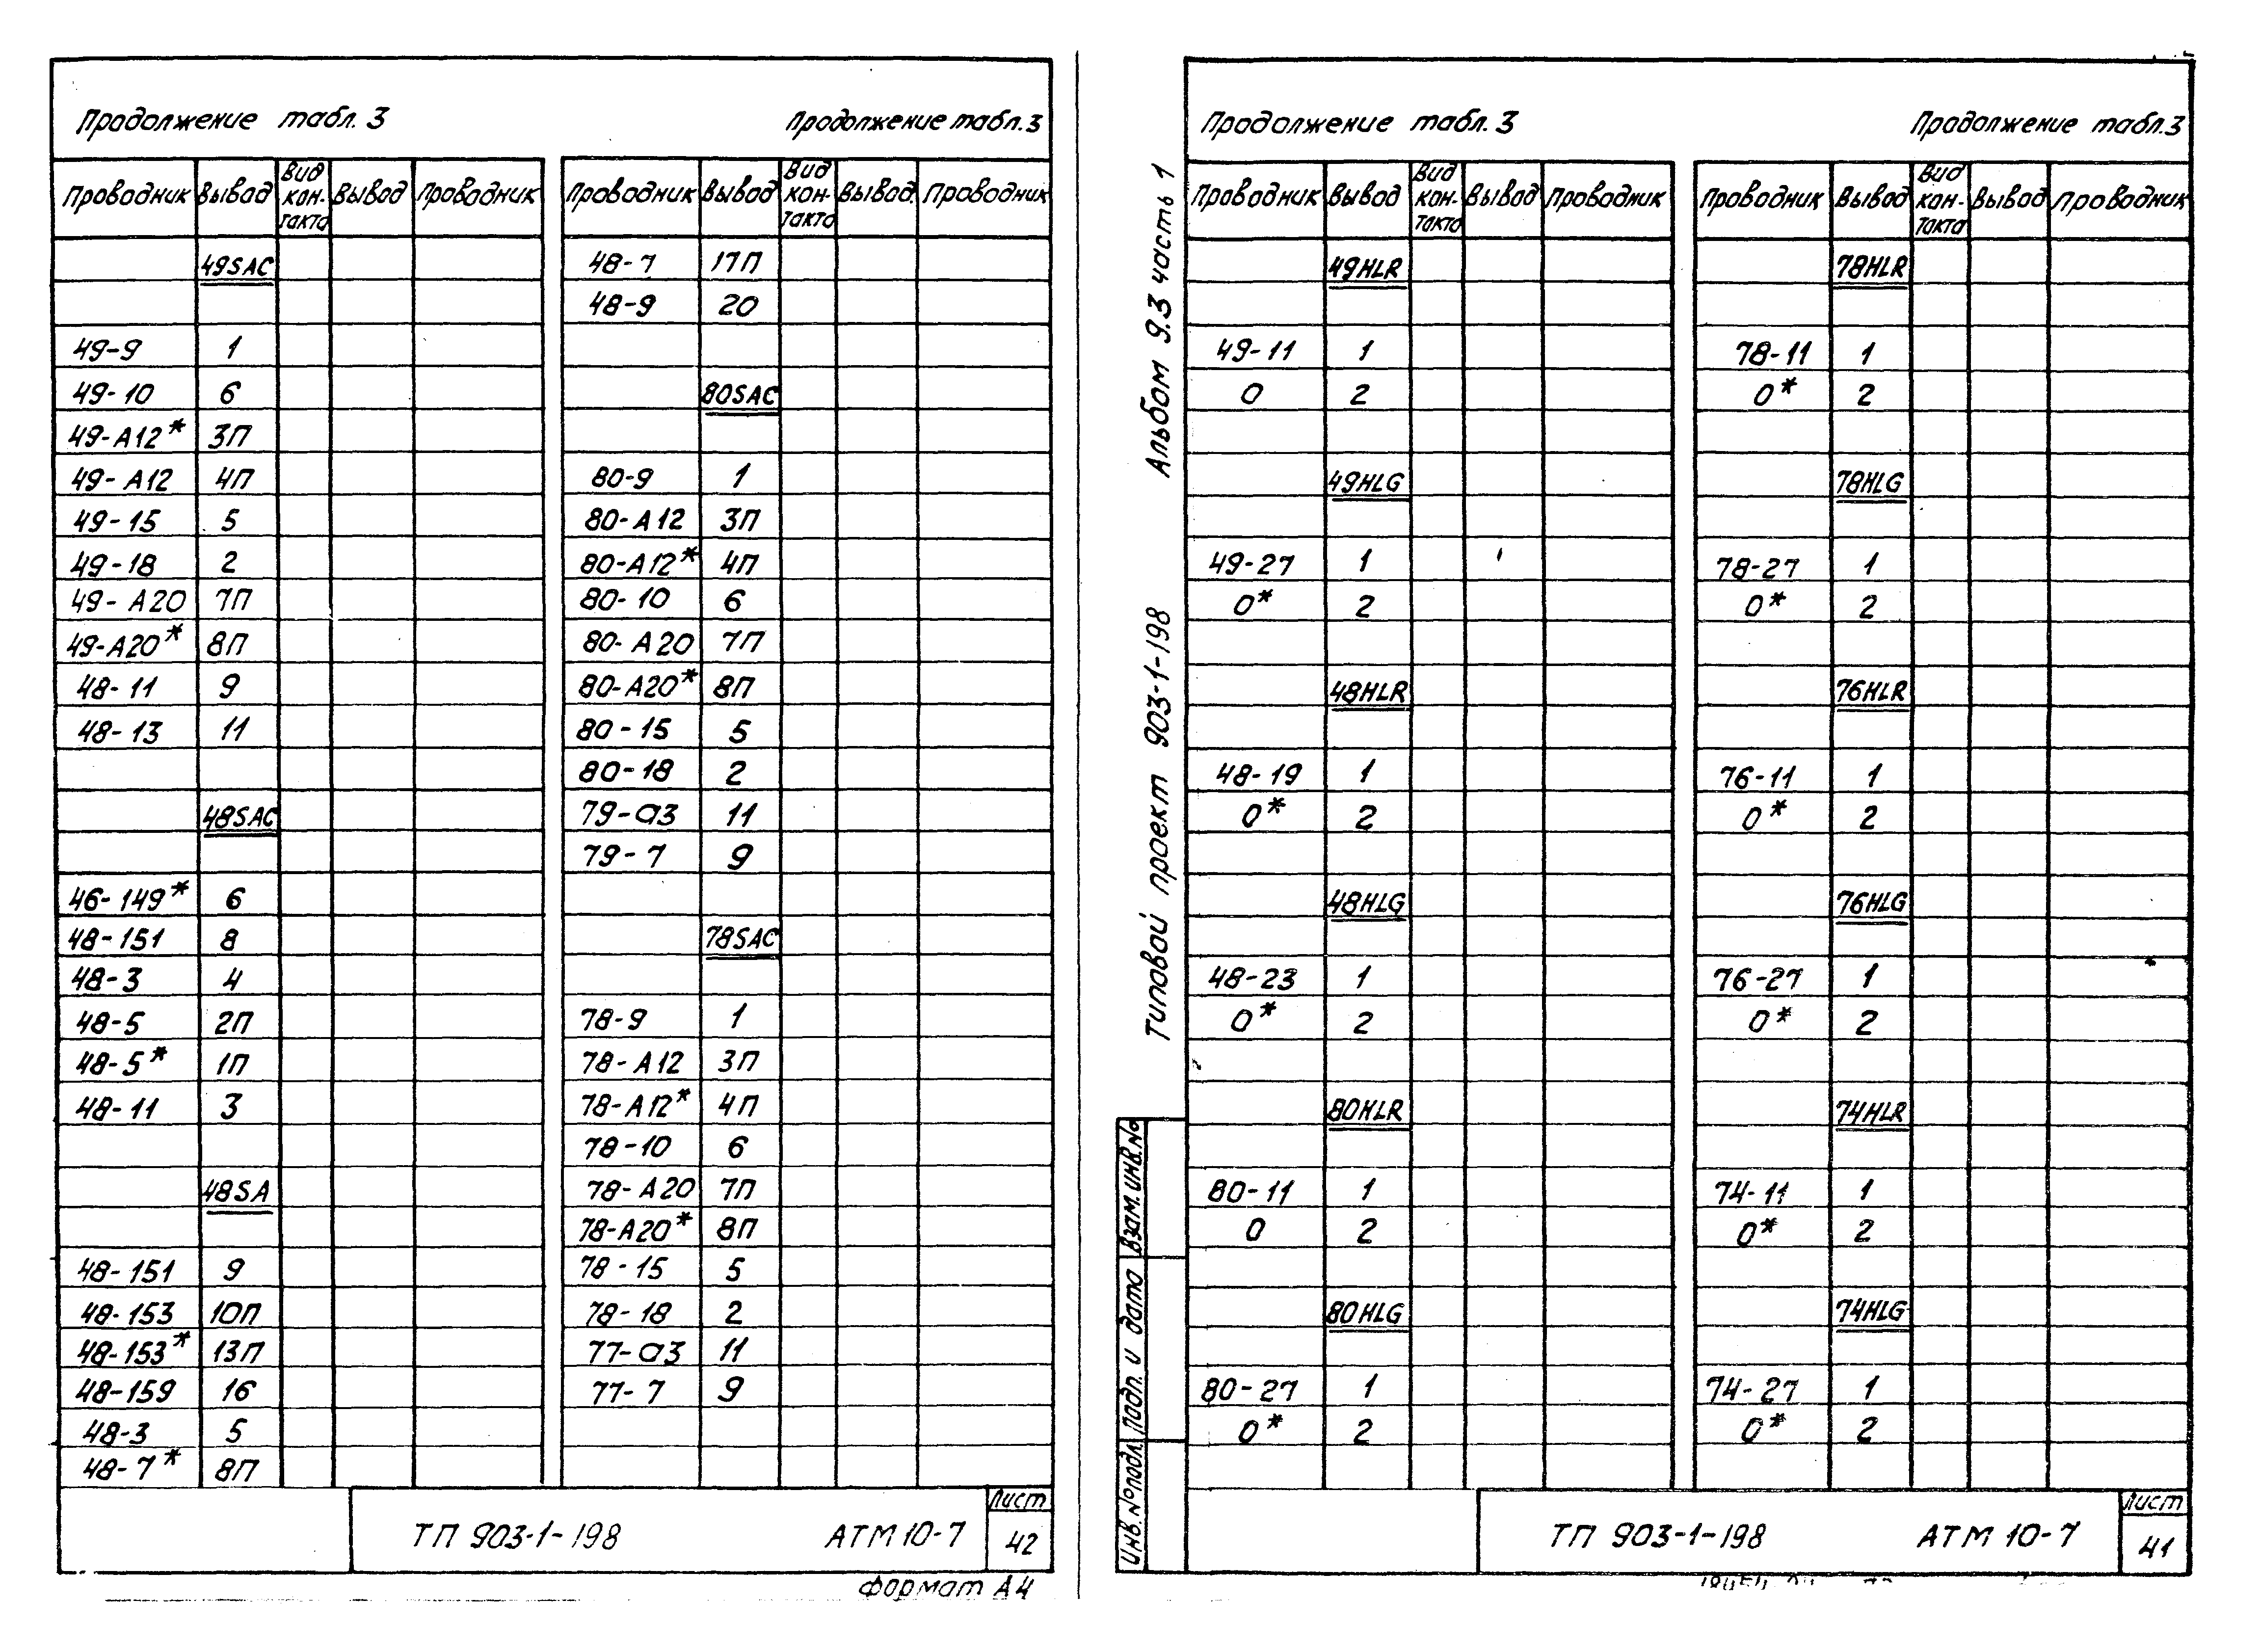 Продолжение табл. 3
Продолжение табл. 3
Проводник Вывод Вид кон- такта Вывод Проводник
49SAC
49-9 1
49-10 6
49-А12* 3П
49-А12 4П
49-15 5
49-18 2
49-А20 7П
49-А20* 8П
48-11 9
48-13 11
48SAC
46-149* 6
48-151 8
48-3 4
48-5 2П
48-5* 1П
48-11 3
48SA
48-151 9
48-153 10П
48-153* 13П
48-159 16
48-3 5
48-7* 8П
Проводник Вывод Вид кон- такта Вывод Проводник
48-7 17П
48-9 20
80SAC
80-9 1
80-А12 3П
80-А12* 4П
80-10 6
80-А20 7П
80-А20* 8П
80-15 5
80-18 2
79-а3 11
79-7 9
78SAC
78-9 1
78-А12 3П
78-А12* 4П
78-10 6
78-А20 7П
78-А20* 8П
78-15 5
78-18 2
77-а3 11
77-7 9
ТП 903-1-198 АТМ 10-7
Лист
42
Формат А4
Альбом 9.3 часть 1
Типовой проект 903-1-198
Взам. инв. №
Подп. и дата
Инв. № подл.
Продолжение табл. 3
Продолжение табл. 3
Проводник Вывод Вид кон- такта Вывод Проводник
49HLR
49-11 1
0 2
49HLG
49-27 1
0* 2
48HLR
48-19 1
0* 2
48HLG
48-23 1
0* 2
80HLR
80-11 1
0 2
80HLG
80-27 1
0* 2
Проводник Вывод Вид кон- такта Вывод Проводник
78HLR
78-11 1
0* 2
78HLG
78-27 1
0* 2
76HLR
76-11 1
0* 2
76HLG
76-27 1
0* 2
74HLR
74-11 1
0* 2
74HLG
74-27 1
0* 2
ТП 903-1-198 АТМ 10-7
Лист
41